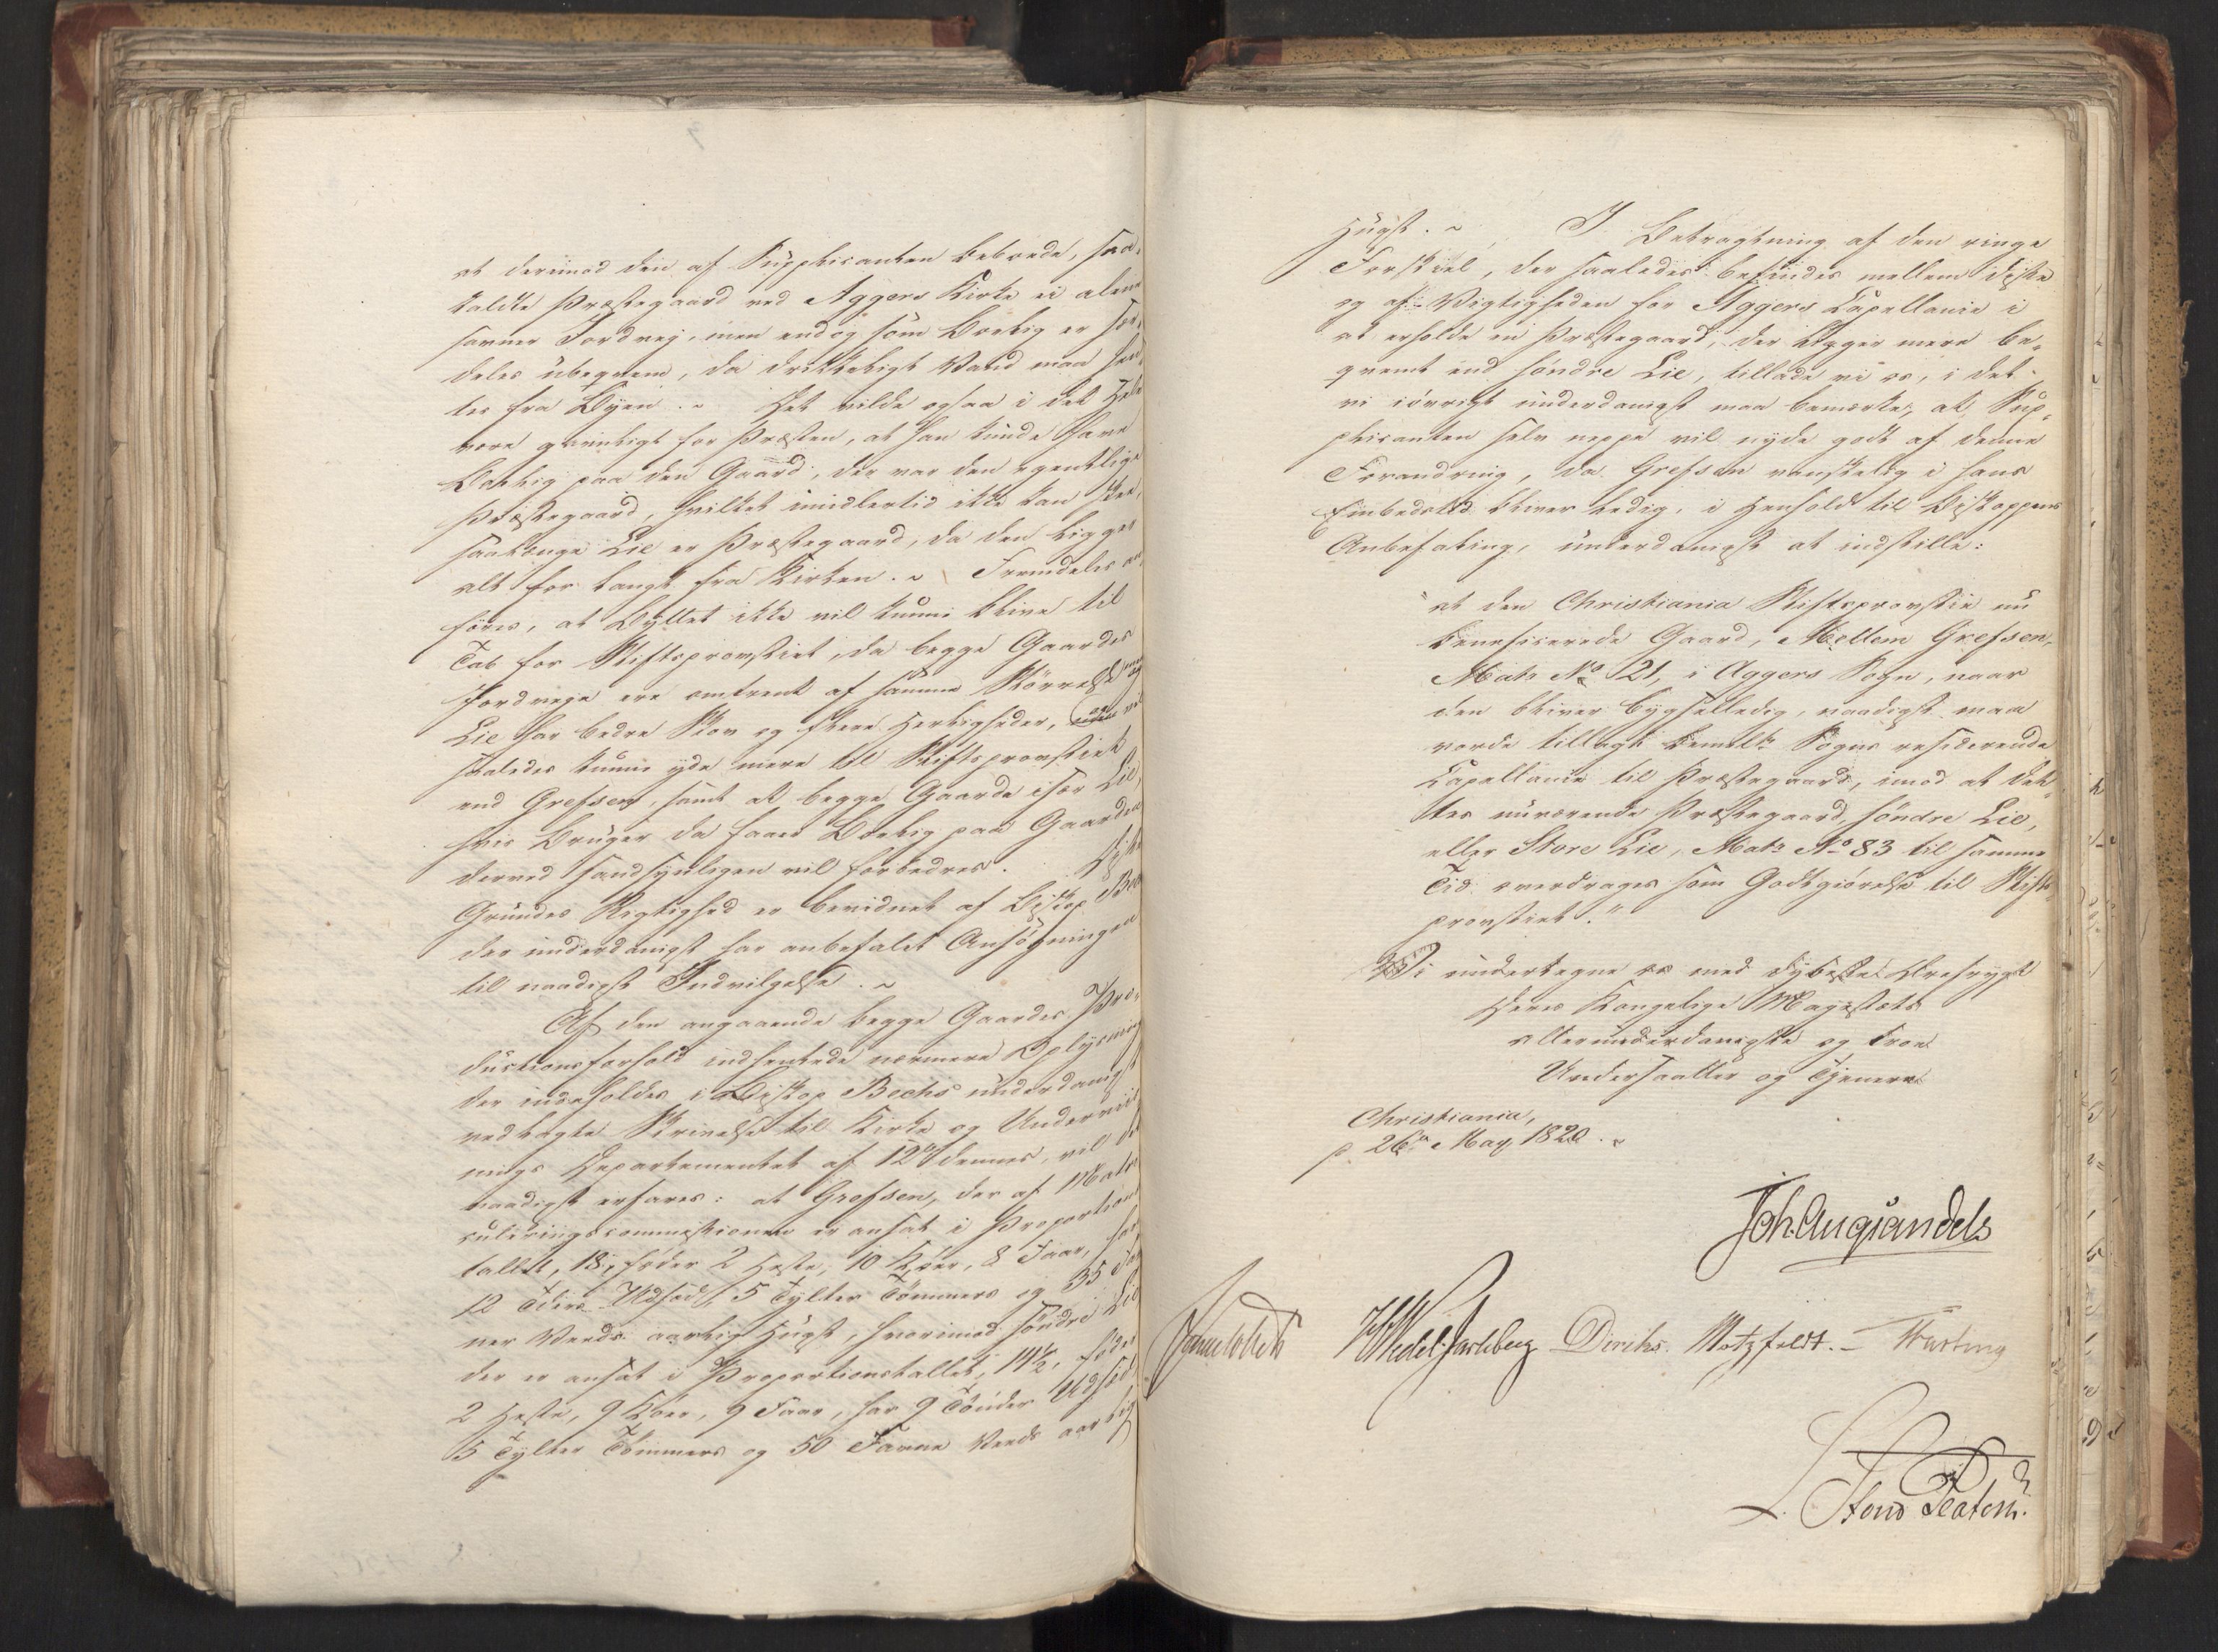 at derimod den af Supplicanten beboede, saa-
kaldte Præstegaard ved Aggers Kirke ei alene
savner Jordvej, men endog som Boelig er sær-
deles ubeqvem, da drikkeligt Vand maa hen-
tes fra Byen. Det vilde ogsaa i det Hele
være gavnligt for Præsten, at han kunde have
Boelig paa den Gaard, der var den egentlige
Præstegaard, hvilket imidlertid ikke kan skee,
saalænge Lie er Præstegaard, da den ligger
alt for langt fra Kirken. Fremdeles an-
føres, at Byttet ikke vil kunne blive til
Tab for Stiftsprovstiet, da begge Gaardes
Jordveje ere omtrent af samme Størrelse men
Lie har bedre Skov og flere Herligheder, og vil
saaledes kunne yde mere til Stiftsprovstiet
end Grefsen, samt at begge Gaarde især Lie,
hvis Bruger da faaer Boelig paa Gaarden
derved sandsynligen vil forbedres. Disse
Grundes Rigtighed er bevidnet af Biskop Bech
der underdanigst har anbefalet Ansøgningen
til naadigst Indvilgelse.
Af den angaaende begge Gaardes Pro-
ductionsforhold indhentede nærmere Oplysning
der indeholdes i Biskop Bechs underdanigst
vedlagte Skrivelse til Kirke og Underviis-
nings Departementet af 12te dennes, vil det
naadigst erfares: at Grefsen, der af Matri-
culeringscommissionen er ansat i Proportions-
tallet, 18, føder 2 Heste, 10 Kiøer, 8 Faar, har
12 Tdrs Udsæd, 5 Tylter Tømmers og 35 Fav-
ner Veeds aarlig Hugst, hvorimod søndre Lie
der er ansat i Proportionstallet, 14½, føder
2 Heste, 9 Køer, 9 Faar, har 9 Tønder Udsæd
5 Tylter Tømmers og 50 Favne Veeds aarlig
Hugst. I Betragtning af den ringe
Forskiel, der saaledes befindes mellem disse
og af Vigtigheden for Aggers Capellanie i
at erholde en Præstegaard, der ligger mere be-
qvemt end søndre Lie, tillade vi os, i det
vi iøvrigt underdanigst maa bemærke, at Sup-
plicanten selv neppe vil nyde godt af denne
Forandring, da Grefsen vanskelig i hans
Embedstid bliver ledig, i Henhold til Biskoppens
Anbefaling, underdanigst at indstille:
"at den Christiania Stiftsprovstie nu
beneficerede Gaard, Mellem Grefsen,
Matr No 21, i Aggers Sogn, naar
den bliver bygselledig, naadigst maa
vorde tillagt bemelte Sogns residerende
Capellanie til Præstegaard, imod at det-
tes nuværende Præstegaard, søndre Lie,
eller Store Lie, Matr No 83 til samme
Tid overdrages som Godtgiørelse til Stifts-
provstiet."
Vi undertegne os med dybeste Ærefrygt
Deres Kongelige Majestæts
allerunderdanigste og troe
Undersaatter og Tjenere
Christiania,
p. 26de May 1820.
Joh. Aug. Sandels
Sommerhielm HWedel Jarlsberg Diriks. Motzfeldt. Fasting
L. Stoud Platou.